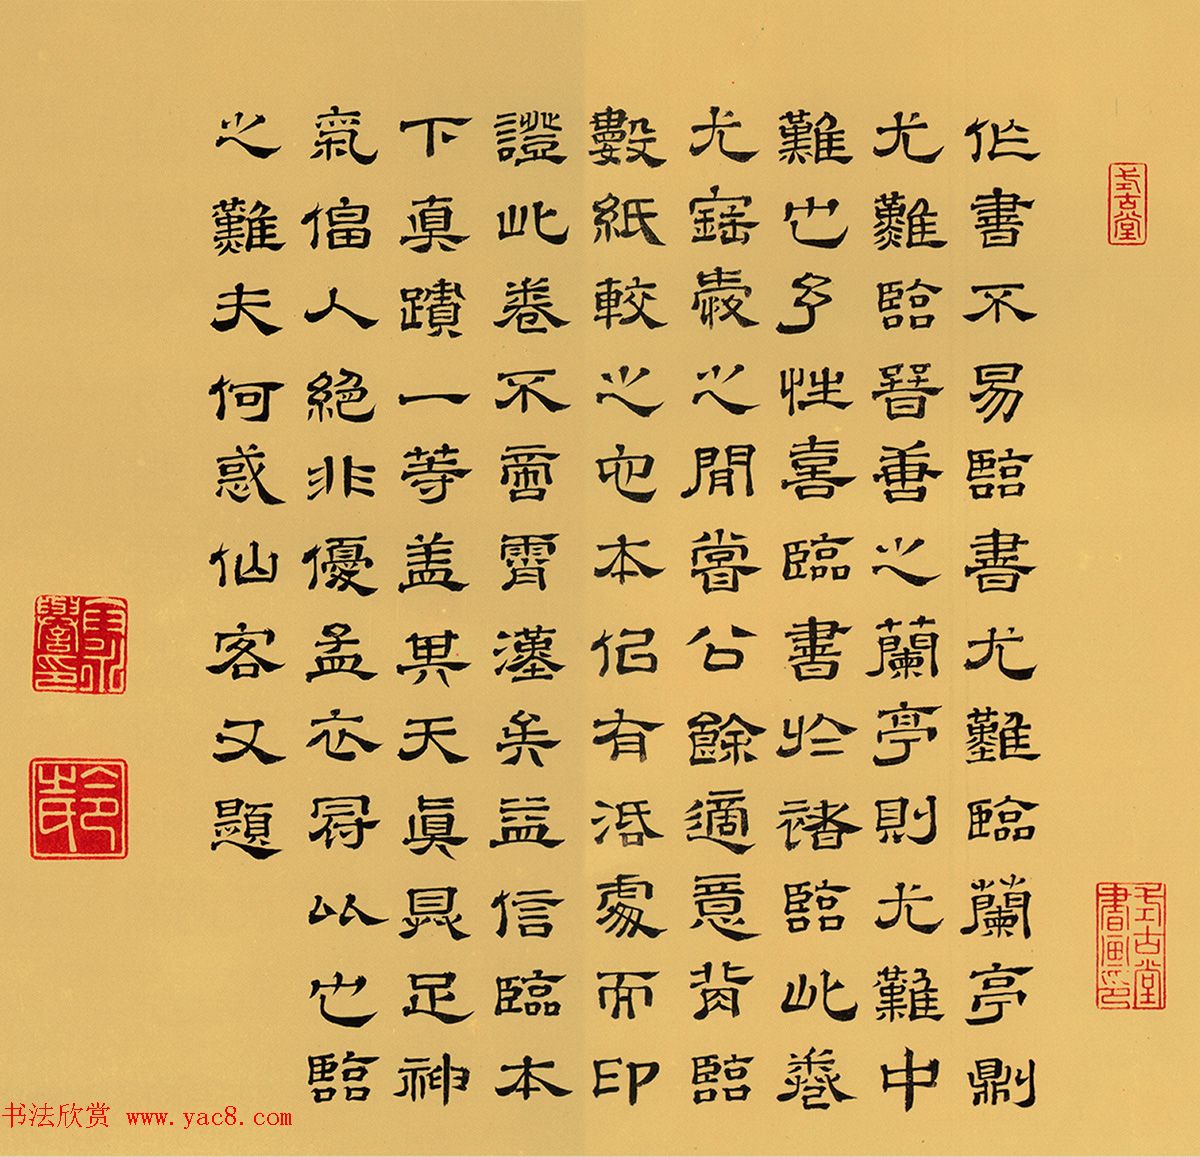 式古堂
作書不易臨書尤難臨蘭亭則
尤難臨晉善之蘭亭則尤難中
難也予性喜臨書於褚臨此卷
尤寶愛之閒嘗公餘適意背臨
數紙較之他本佀有活處而印
證此卷不啻霄漢矣益信臨本
下真蹟一等蓋其天真具足神
氣偪人絕非優孟衣冠比也臨
之難夫何惑仙客又題
式古堂書畫印
卞永譽印
书法欣赏 www.yac8.com